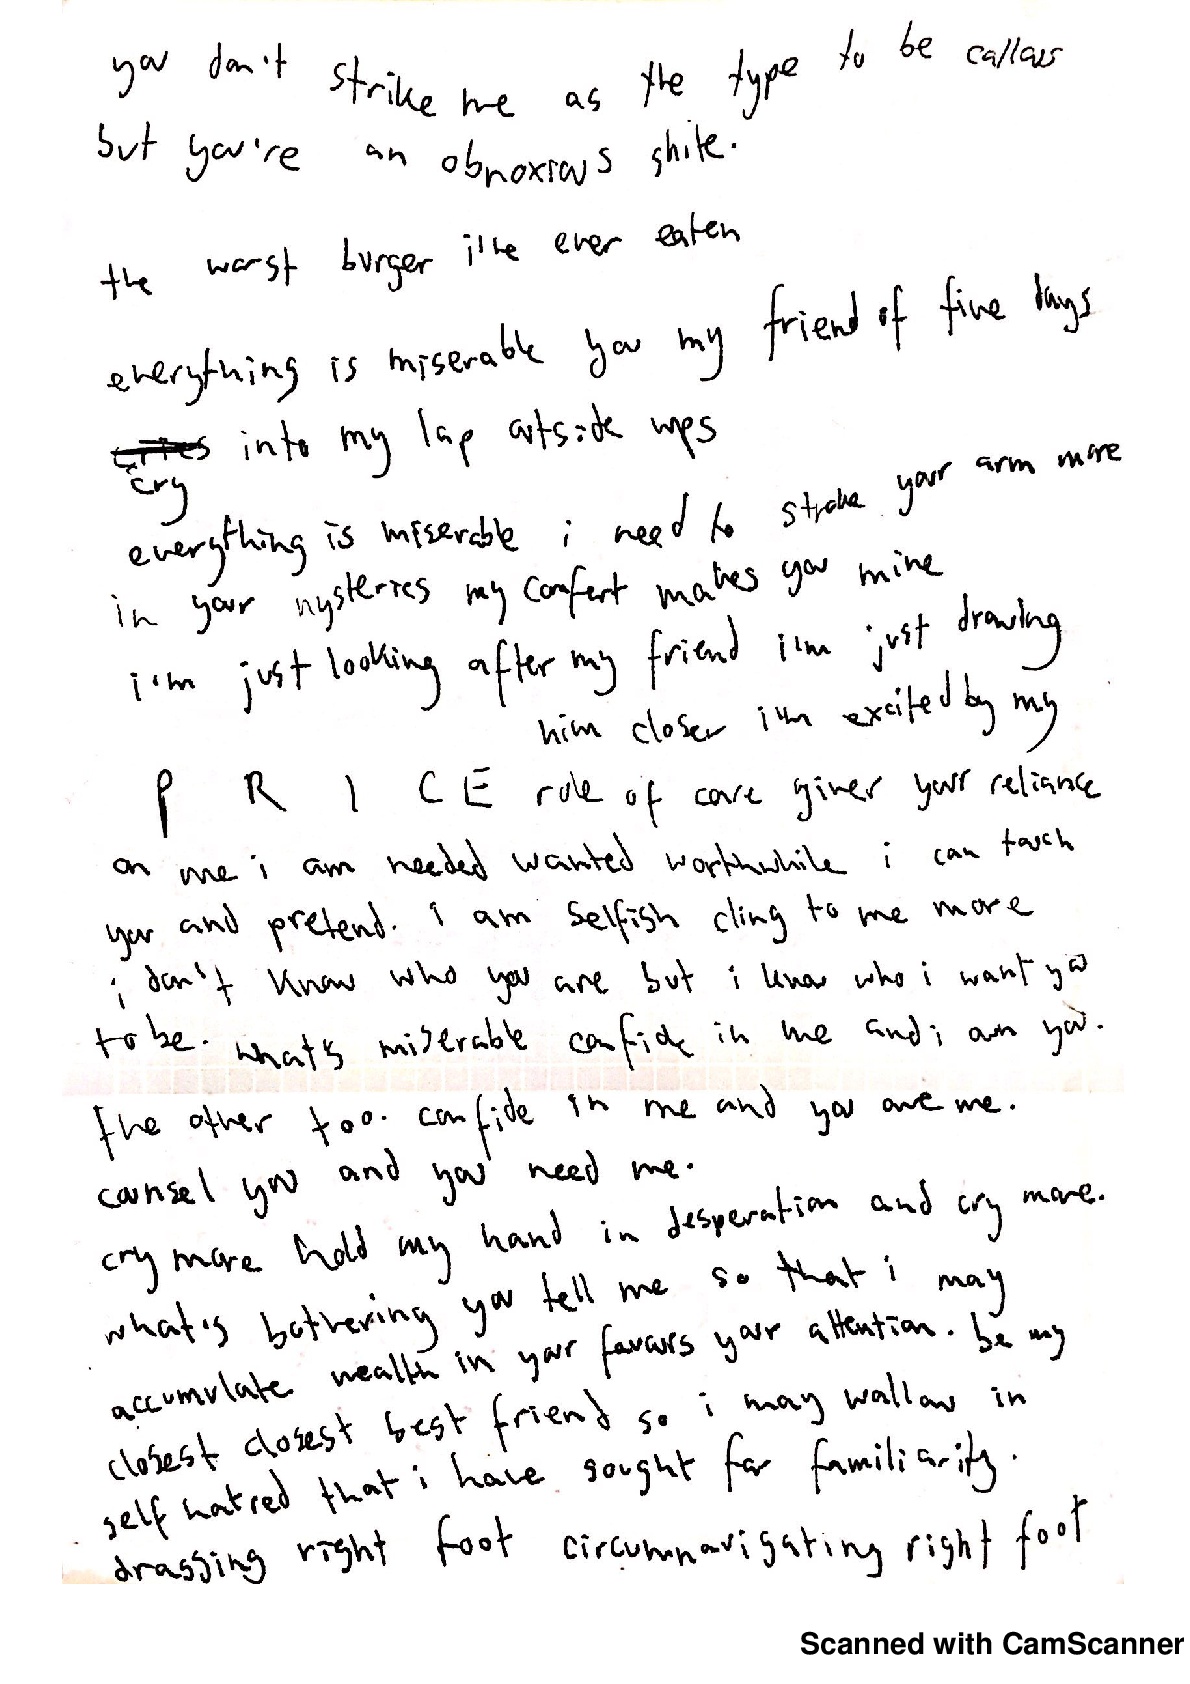 you don't strike me as the type to be callous
but you're an obnoxious shite.
the worst burger i've ever eaten
everything is miserable you my friend of five days
cries into my lap outside wps
cry
everything is miserable i need to stroke your arm more
in your mysteries my comfort makes you mine
i'm just looking after my friend i'm just drawing
him closer i'm excited by my
P R I C E role of care giver your reliance
on me i am needed wanted worthwhile i can touch
you and pretend. i am selfish cling to me more
i don't know who you are but i know who i want you
to be. what's miserable confide in me and i own you.
the other too. confide in me and you owe me.
counsel you and you need me.
cry more hold my hand in desperation and cry more.
what's bothering you tell me so that i may
accumulate wealth in your favours your attention. be my
closest closest best friend so i may wallow in
self hatred that i have sought for familiarity.
dragging right foot circumnavigating right foot
Scanned with CamScanner